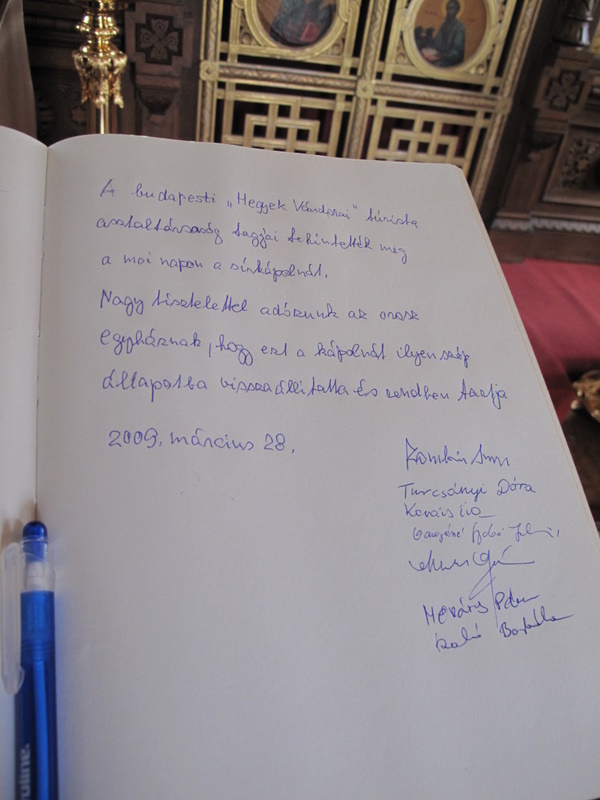 A budapesti „Hegyek Vándorai" túrista
asztaltársaság tagjai tekintették meg
a mai napon a sírkápolnát.
Nagy tisztelettel adózunk az orosz
egyháznak, hogy ezt a kápolnát ilyen szép
állapotba visszaállította és rendben tartja
2009. március 28.
Turcsányi Dóra
Kovács Éva